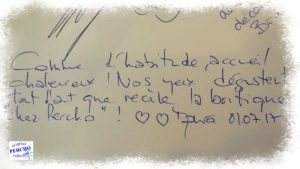 Comme d'habitude, accueil
chaleureux ! Nos yeux dégustent
tout l'art que recèle la boutique
"chez Percho" ! ♡♡ 01.07.17
PERCHO